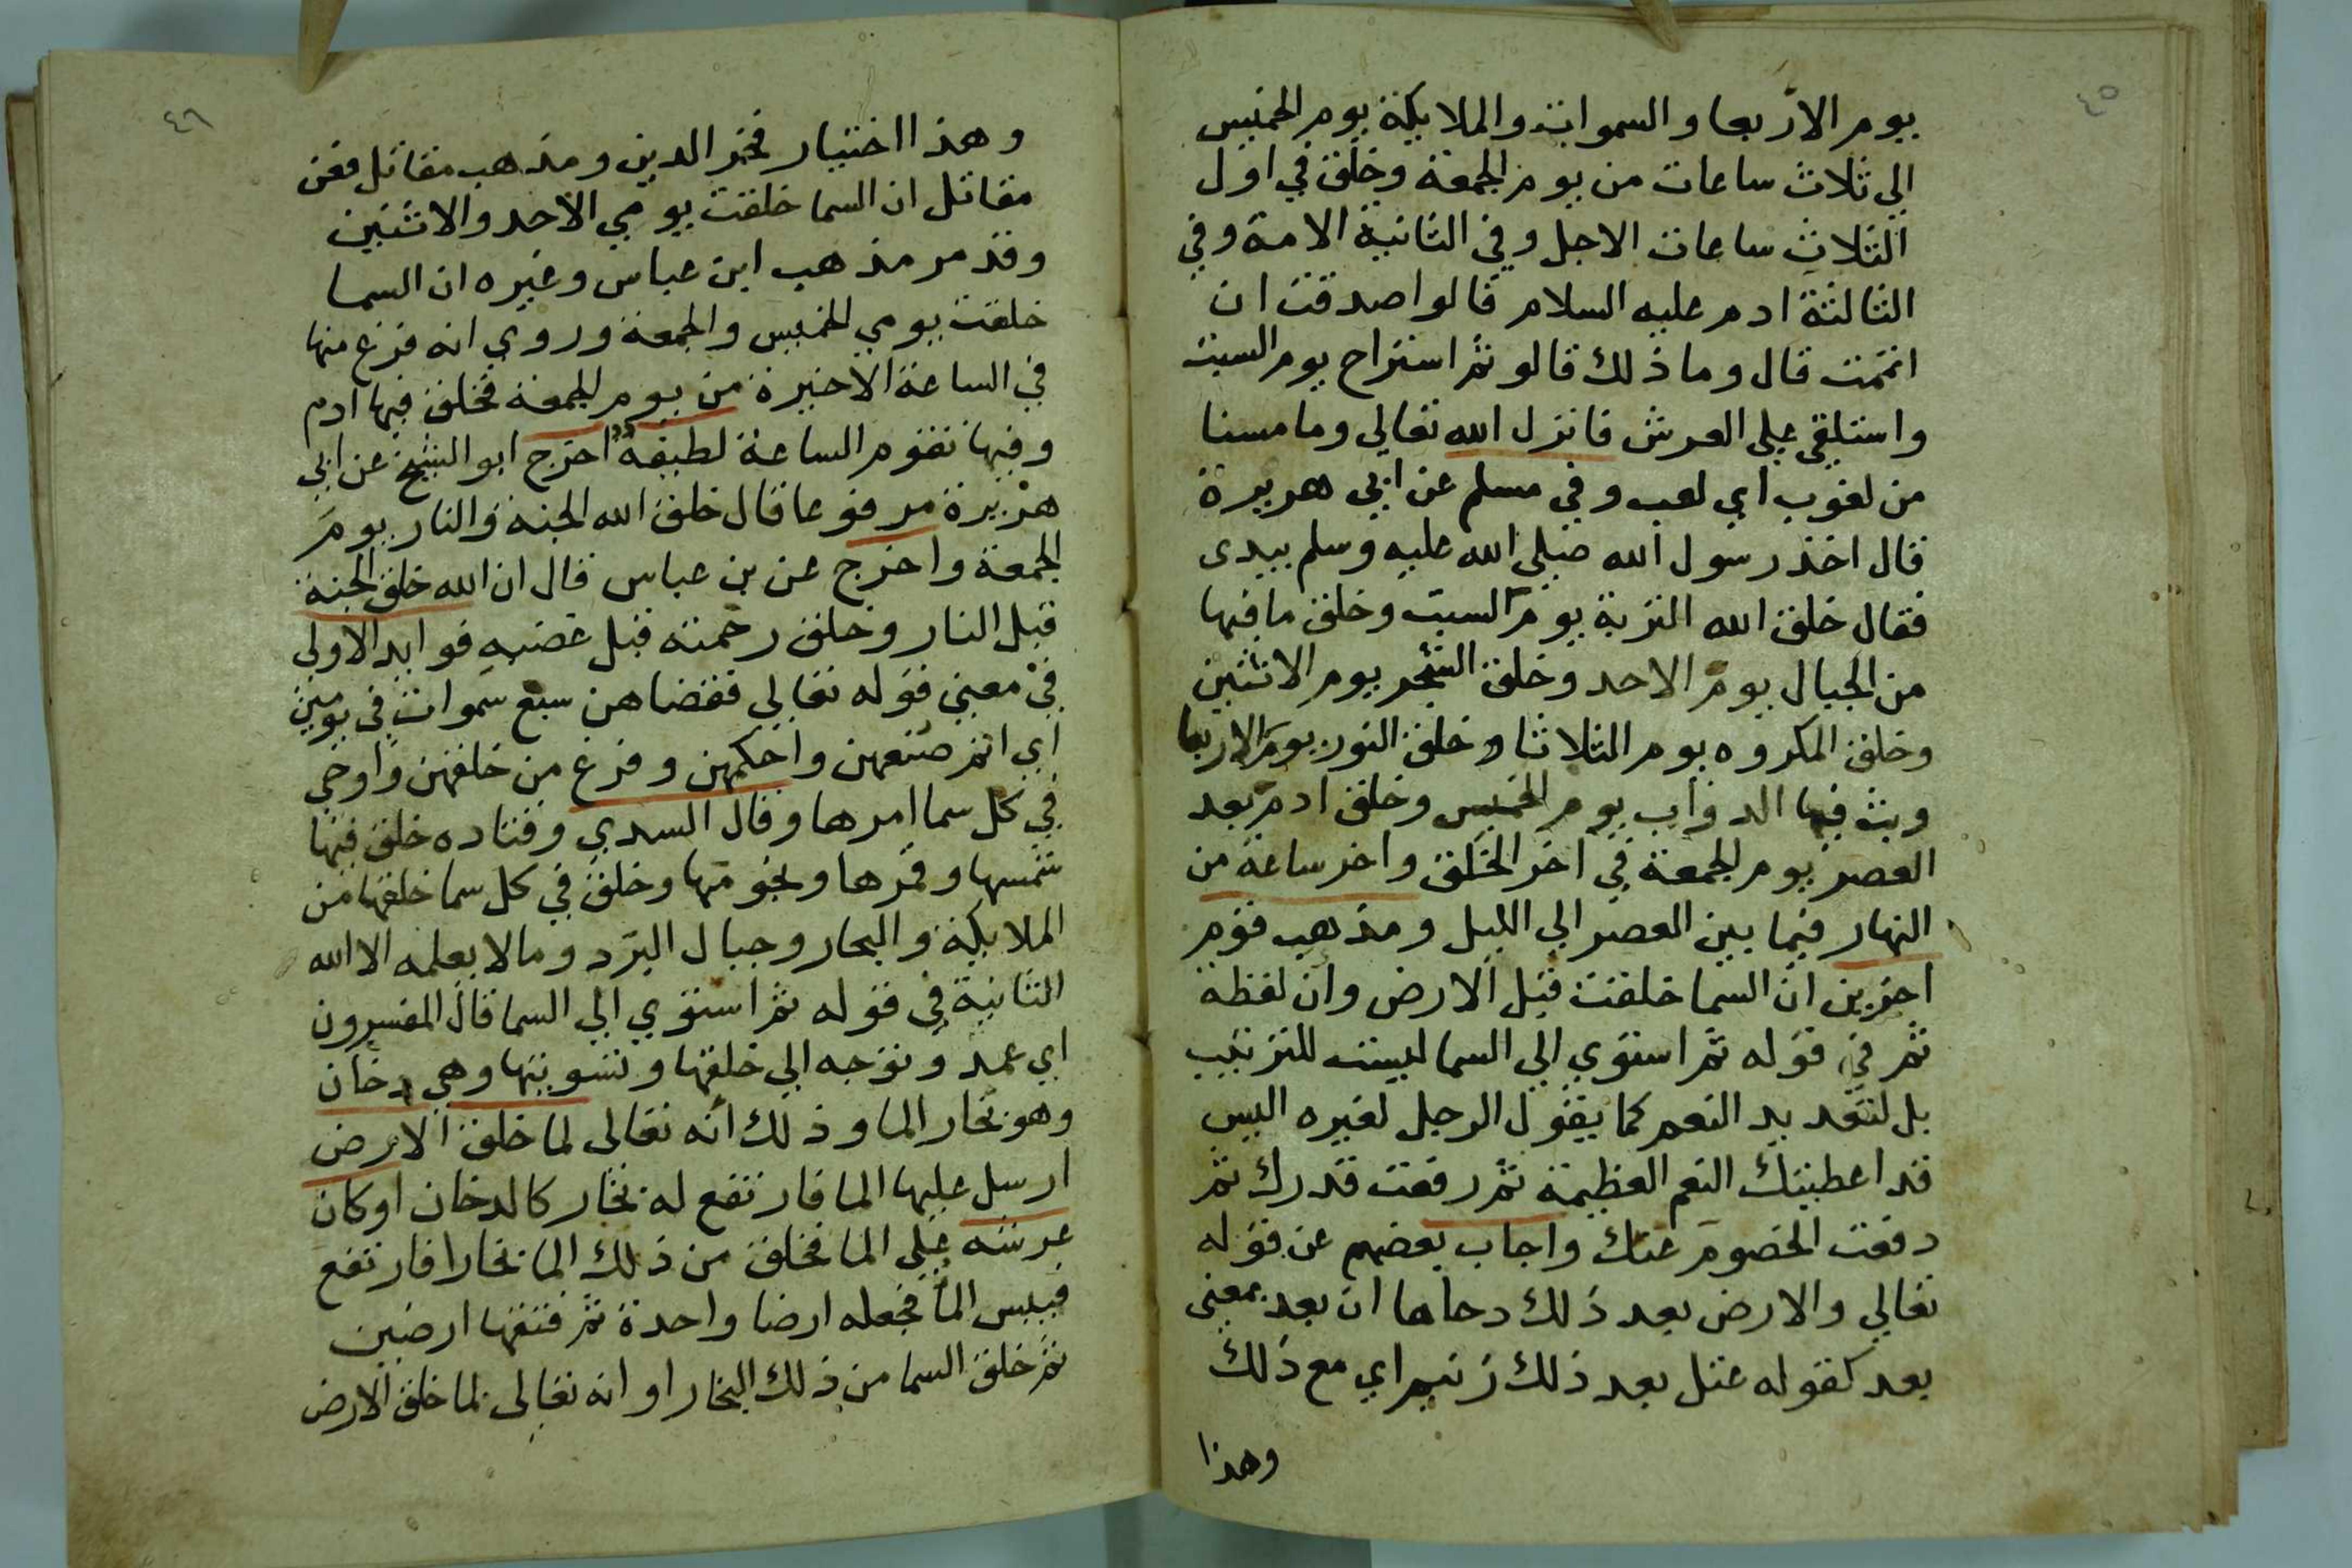 ٤٥
يوم الاربعا والسموات والملايكة يوم الخميس
الي ثلاث ساعات من يوم الجمعة وخلق في اول
الثلاث ساعات الاجل وفي الثانية الامة وفي
الثالثة ادم عليه السلام قالوا صدقت ان
اتممت قال وما ذلك قالو ثم استراح يوم السبت
واستلقي علي العرش فانزل الله تعالي وما مسنا
من لغوب اي لعب وفي مسلم عن ابي هريرة
قال اخذ رسول الله صلي الله عليه وسلم بيدى
فقال خلق الله التربة يوم السبت وخلق ما فيها
من الجبال يوم الاحد وخلق الشجر يوم الاثنين
وخلق المكروه يوم الثلاثا وخلق النور يوم الاربعا
وبث فيها الدواب يوم الخميس وخلق ادم بعد
العصر يوم الجمعة في اخر الخلق واخر ساعة من
النهار فيما بين العصر الي الليل ومذهب قوم
اخرين ان السما خلقت قبل الارض وان لفظة
ثم في قوله ثم استوي الي السما ليست للترتيب
بل لتعديد النعم كما يقول الرجل لغيره اليس
قد اعطيتك النعم العظيمة ثم رفعت قدرك ثم
دفعت الخصوم عنك واجاب بعضهم عن قوله
تعالي والارض بعد ذلك دحاها ان بعد بمعني
بعد كقوله عتل بعد ذلك زنيم اي مع ذلك
وهذا
٤٦
وهذا اختيار فخر الدين ومذهب مقاتل فعن
مقاتل ان السما خلقت يومي الاحد والاثنين
وقد مر مذهب ابن عباس وغيره ان السما
خلقت يومي الخميس والجمعة وروي انه فرغ منها
في الساعة الاخيرة من يوم الجمعة فخلق فيها ادم
وفيها تقوم الساعة لطيفة اخرج ابو الشيخ عن ابي
هريرة مرفوعا قال خلق الله الجنة والنار يوم
الجمعة واخرج عن بن عباس قال ان الله خلق الجنة
قبل النار وخلق رحمته قبل غضبه فوايد الاولي
في معني قوله تعالي فقضاهن سبع سموات في يومين
اي اتم صنعهن واحكمهن وفرغ من خلقهن واوحي
في كل سما امرها وقال السدي وقتاده خلق فيها
شمسها وقمرها ونجومها وخلق في كل سما خلقها من
الملايكة والبحار وجبال البرد ومالا يعلمه الا الله
الثانية في قوله ثم استوي الي السما قال المفسرون
اي عمد وتوجه الي خلقها وتسويتها وهي دخان
وهو بخار الما وذلك انه تعالى لما خلق الارض
ارسل عليها الما فارتفع له بخار كالدخان او كان
عرشه علي الما فخلق من ذلك الما بخارا فارتفع
فيبس الما فجعله ارضا واحدة ثم فتقها ارضين
ثم خلق السما من ذلك البخار او انه تعالى لما خلق الارض